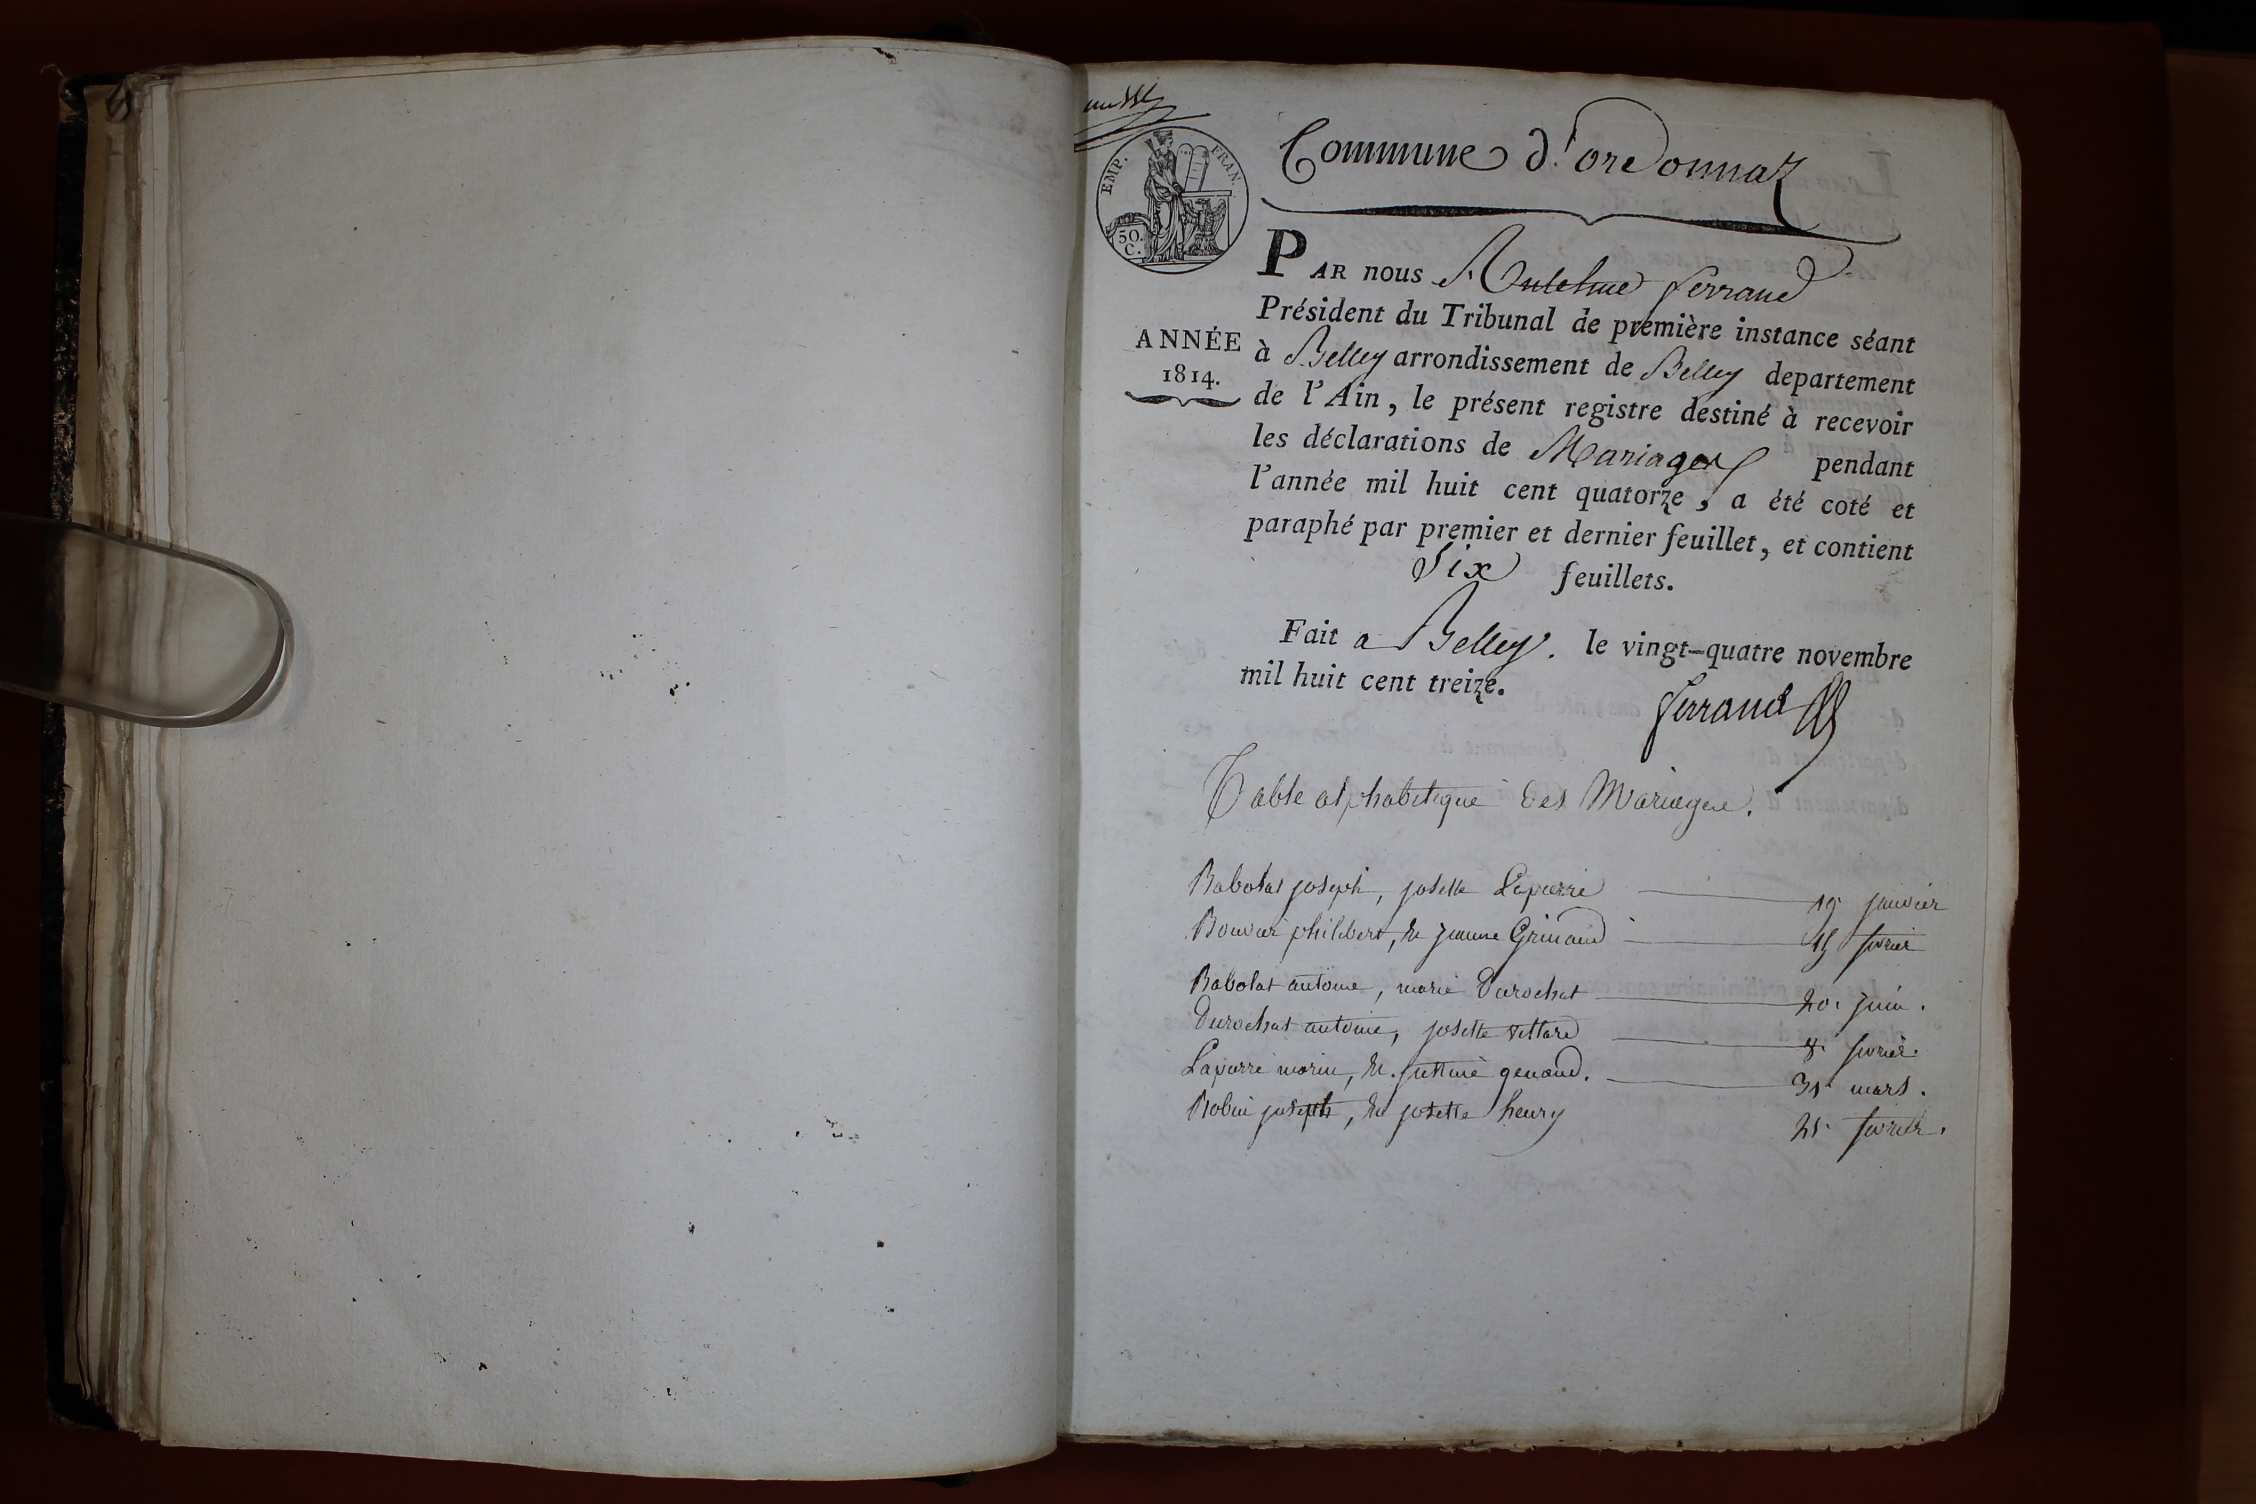 Commune d'ordonnaz
EMP. FRAN.
50. C.
PAR nous Anthelme ferrand
Président du Tribunal de première instance séant
ANNÉE
1814.
à Belley arrondissement de Belley departement
de l'Ain, le présent registre destiné à recevoir
les déclarations de Mariages pendant
l'année mil huit cent quatorze, a été coté et
paraphé par premier et dernier feuillet, et contient
Six feuillets.
Fait a Belley. le vingt-quatre novembre
mil huit cent treize.
ferrand
Table alphabetique des Mariages.
Babolat joseph, josette Lapierre 19 janvier
Bouvier philibert, & jeanne Grinand février
Babolat antoine, marie Durochat 20. juin.
Durochat antoine, josette 8. février.
marin, &. 31 mars.
Robin joseph, & josette henry février.